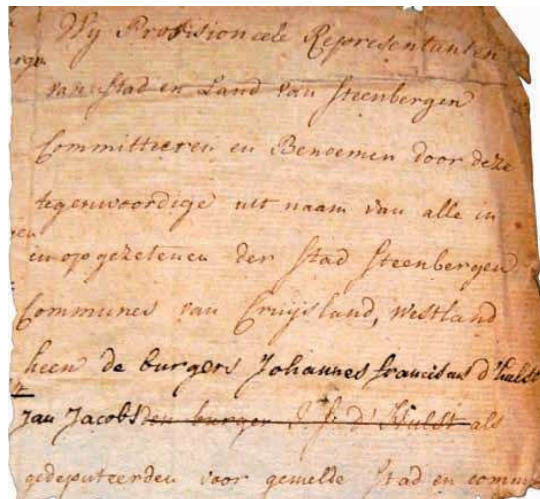 Wij Provisioneele Representanten
van Stad en Land van Steenbergen
Committeren en Benoemen door deze
tegenwoordige uit naam van alle in
en opgezetenen der Stad Steenbergen
Communes van Cruijsland, Westland
heen de burgers Johannes franciscus d'Hulst
Jan Jacobs den burger J. f. d'Hulst als
gedeputeerden voor gemelde Stad en comm